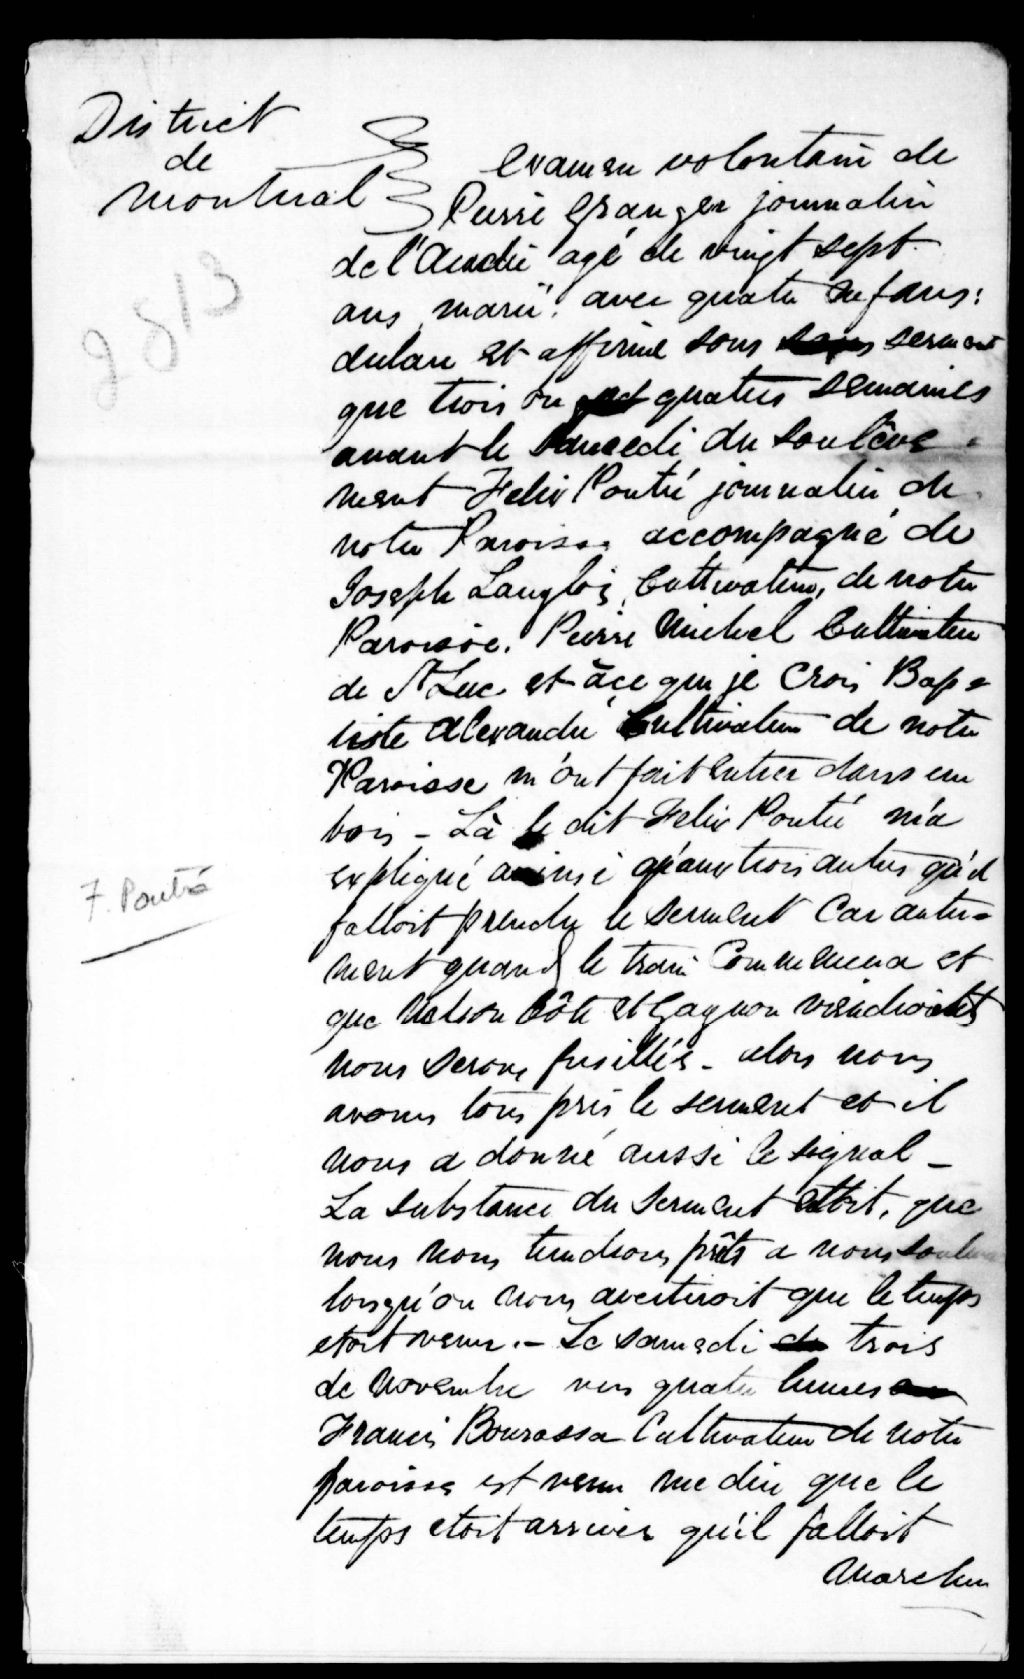 District
de
Montreal
2813
Examen volontaire de
Pierre Granger journalier
de l'Acadie agé de vingt sept
ans, marié, avec quatre enfans:
declare et affirme sous serment
que trois ou quatres semaines
avant le samedi du soulève-
ment Felix Poutré journalier de
notre Paroisse accompagné de
Joseph Langlois, Cultivateur, de notre
Paroisse, Pierre Michel Cultivateur
de St Luc et àce que je crois Bap-
tiste Alexandre Cultivateur de notre
Paroisse m'ont fait entrer dans un
bois - Là le dit Felix Poutré m'a
expliqué ainsi qu'aux trois autres qu'il
F. Poutré
falloit prendre le serment Car autre-
ment quand le train Commencera et
que Nelson Côte et Gagnon viendroient
nous serons fusillés - alors nous
avons tous pris le serment et il
nous a donné aussi le signal -
La substance du serment etoit, que
nous nous tiendrons prêts a nous
lorsqu'on nous avertiroit que le temps
etoit venu. - Le samedi trois
de Novembre vers quatre heures
Francis Bourassa Cultivateur de notre
paroisse est venu me dire que le
temps etoit arriver qu'il falloit
Marcher